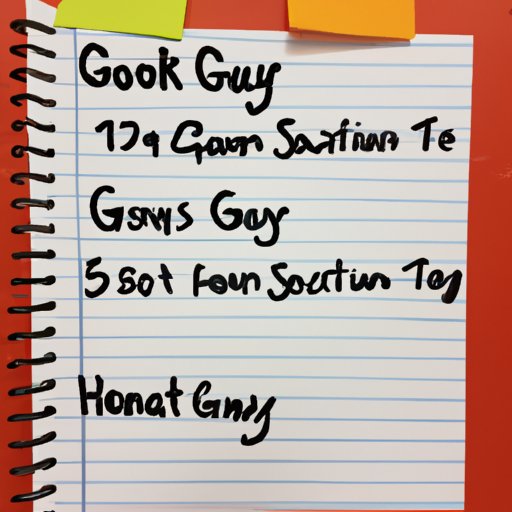 Gook Guy
17q Gawn Saxtiwn Te
Gswys Goy
5 sot Foun Soctiun Toy
Honat Gnnj